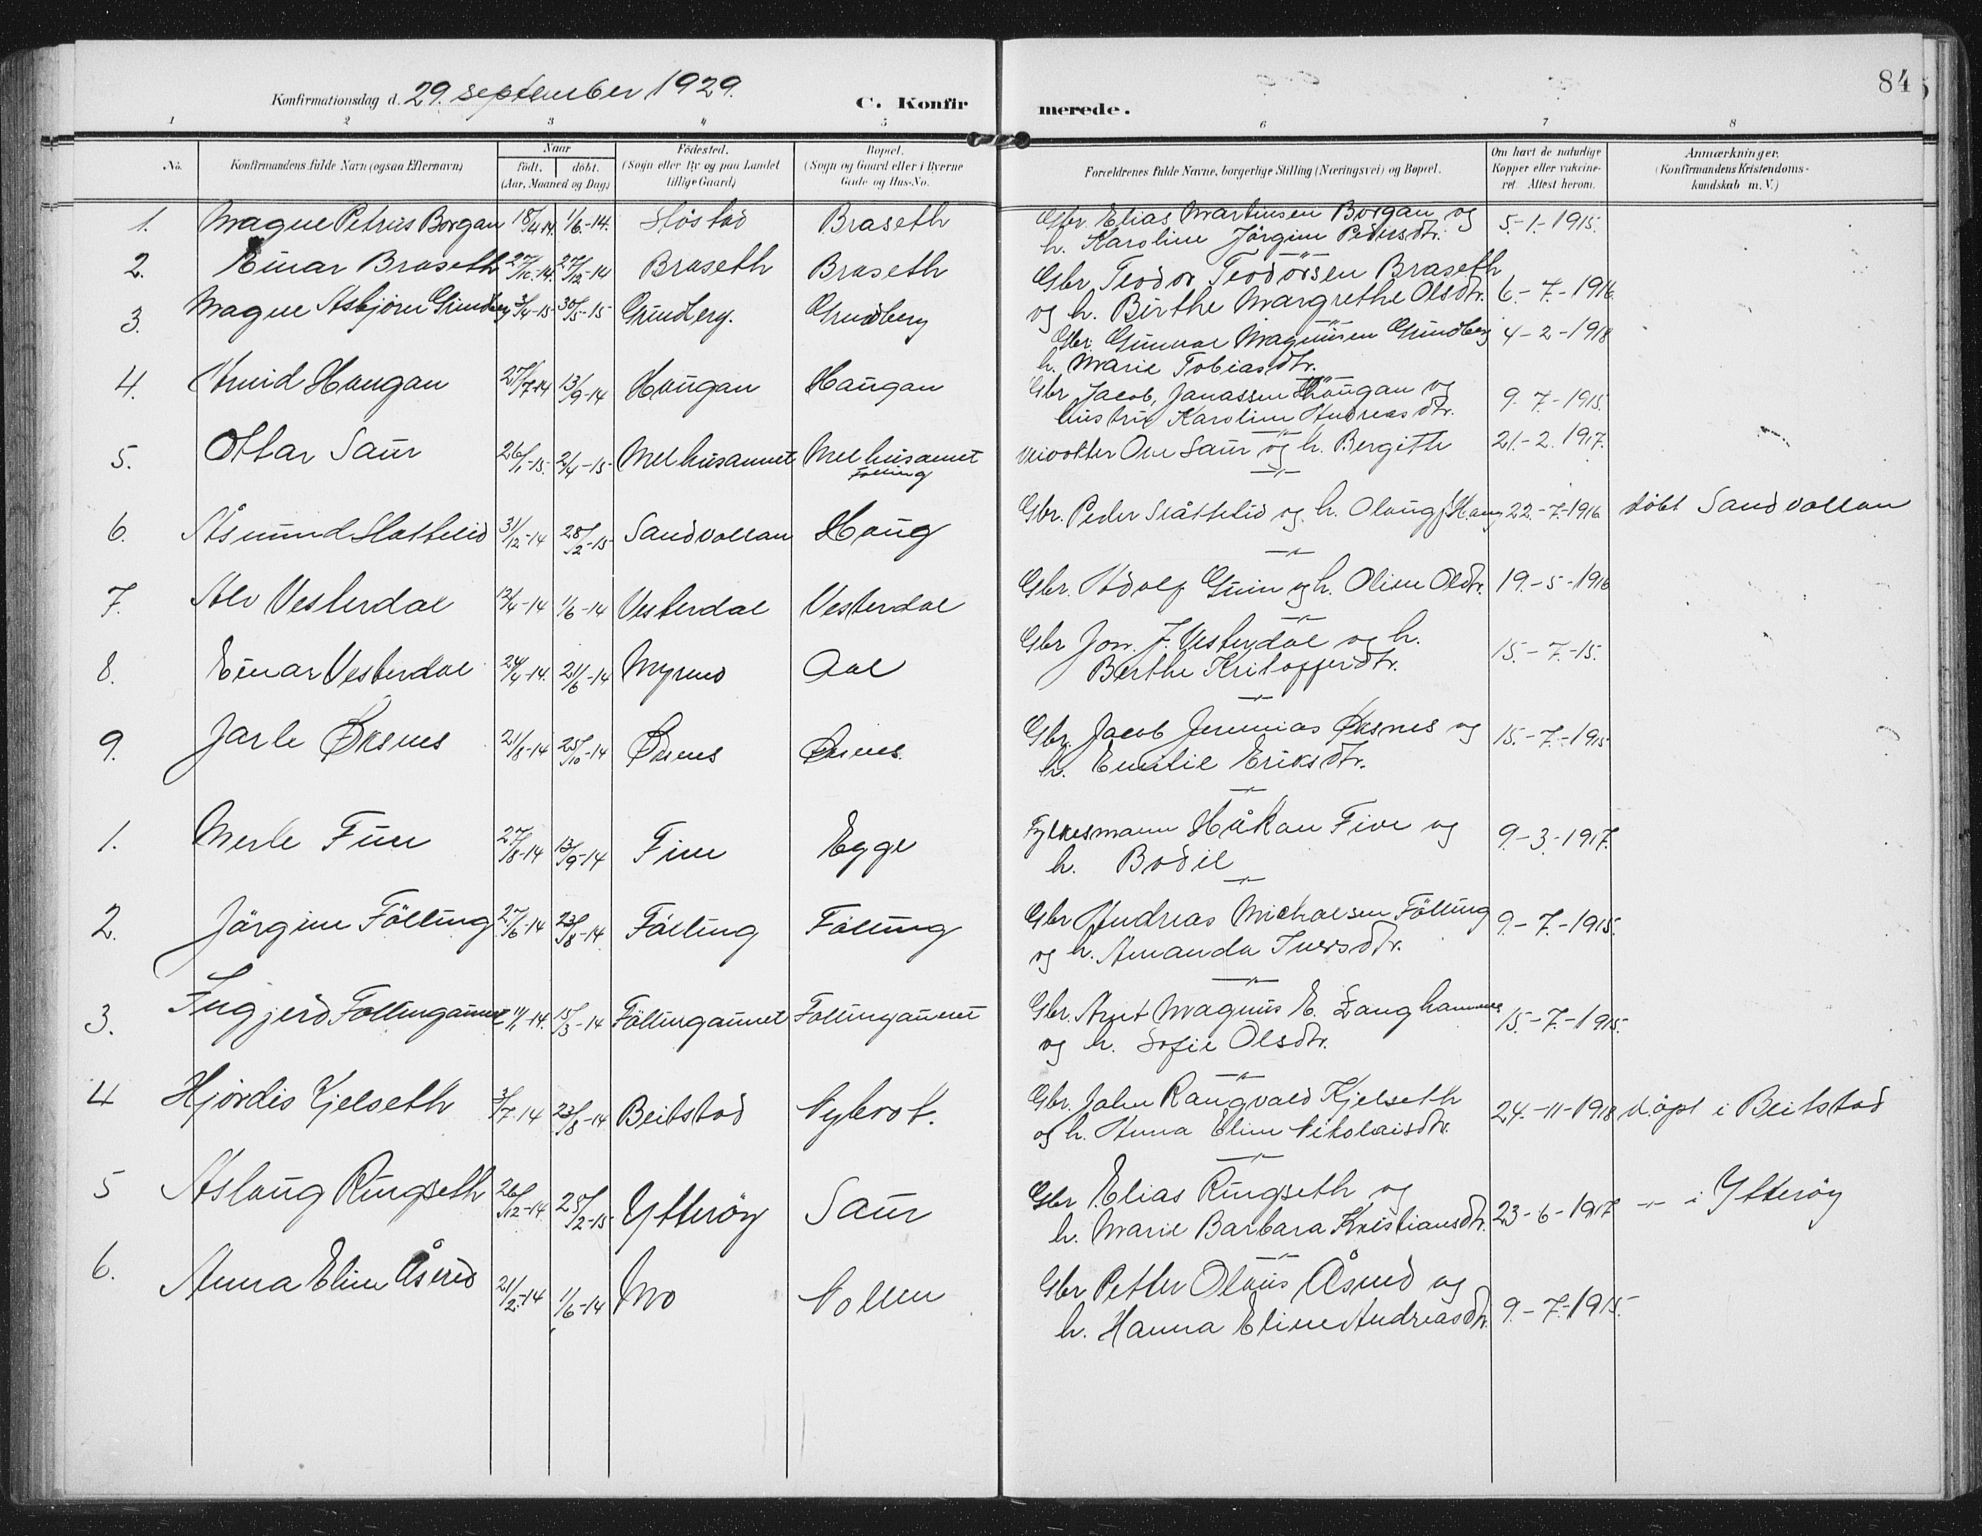 Konfirmationsdag d. 29. september 1929. C. Konfirmerede. 84
1 2 3 4 5 6 7 8
No. Konfirmandens fulde Navn (ogsaa Efternavn) Naar født. døbt. (Aar, Maaned og Dag) Fødested. (Sogn eller By og paa Landet tillige Gaard) Bopæl. (Sogn og Gaard eller i Byerne Gade og Hus-No. Forældrenes fulde Navne, borgerlige Stilling (Næringsvei) og Bopæl. Om havt de naturlige Kopper eller vakcineret. Attest herom. Anmærkninger. (Konfirmandens Kristendomskundskab m. V.)
1. Magne Petrus Borgan 18/4-14. 1/6-14. Braseth Gbr. Elias Martinsen Borgan og 5-1-1915.
h. Karoline Jörgine Pedersdtr.
2. Einar Braseth 27/12-14 Braseth Braseth Gbr. Teodor Teodorsen Braseth 6-7-1916
og h. Birthe Margrethe Olsdtr.
3. Magne Asbjörn Grindberg 3/4-15 30/5-15 Grindberg. Grindberg Gbr. Gunnar Magnussen Grindberg 4-2-1918
h. Marie Tobiasdtr.
4. Arvid Haugan 27/7-14 13/9-14 Haugan Haugan Gbr. Jacob Janassen Haugan og 9-7-1915
hustru Karoline Andreasdtr.
5. Ottar Saur 26/1-15. 2/4-15 Melhusaunet Melhusaunet Veivokter Ove Saur og h. Bergithe 21-2-1917.
Følling
6. Åsmund Slottelid 31/12-14 28/2-15 Sandvollan Haug Gbr. Peder Slåttelid og h. Olaug J. Haug 22-7-1916 döbt Sandvollan
7. Alv Vesterdal 12/4-14 1/6-14 Vesterdal Vesterdal Gbr. Adolf og h. Oline Olsdtr. 19-5-1916
8. Einar Vesterdal 24/4-14. 21/6-14 Myrmo Aal Gbr. Jon. J. Vesterdal og h. 15-7-15.
Berthe Kristofferdtr.
9. Jarle Øksnes 21/8-14 25/10-14 Øksnes Øksnes. Gbr. Jacob Jeremias Øksnes og 15-7-1915
h. Emelie Eriksdtr.
1. Merle Five 27/8-14 13/9-14 Five Egge Fylkesmann Håkon Five og 9-3-1917.
h. Bodil
2. Jörgine Fölling 27/6-14 23/8-14 Fölling Fölling Gbr. Andreas Michaelsen Fölling 9-7-1915.
og h. Amanda Iversdtr.
3. Ingjerd Föllingaunet 11/1-14. 15/3-14 Föllingaunet Föllingaunet Gbr. Arnt Magnus E. Langhammer 15-7-1915.
og h. Sofie Olsdtr.
4 Hjördis Kjelseth 3/7-14 23/8-14 Beitstad Nybrot. Gbr. John Rangvald Kjelseth 24-11-1918 döpt i Beitstad
og h. Anna Eline Nikolaisdtr.
5 Aslaug Ringseth 26/12-14 25/2-15 Ytterøy Saur Gbr. Elias Ringseth og 23-6-1917 -"- i Ytterøy
h. Marie Barbara Kristiansdtr.
6. Anna Eline Åsend 21/2-14 1/6-14 Mo Vollen Gbr. Petter Olaus Åsend og 9-7-1915.
h. Hanna Eline Andreasdtr.